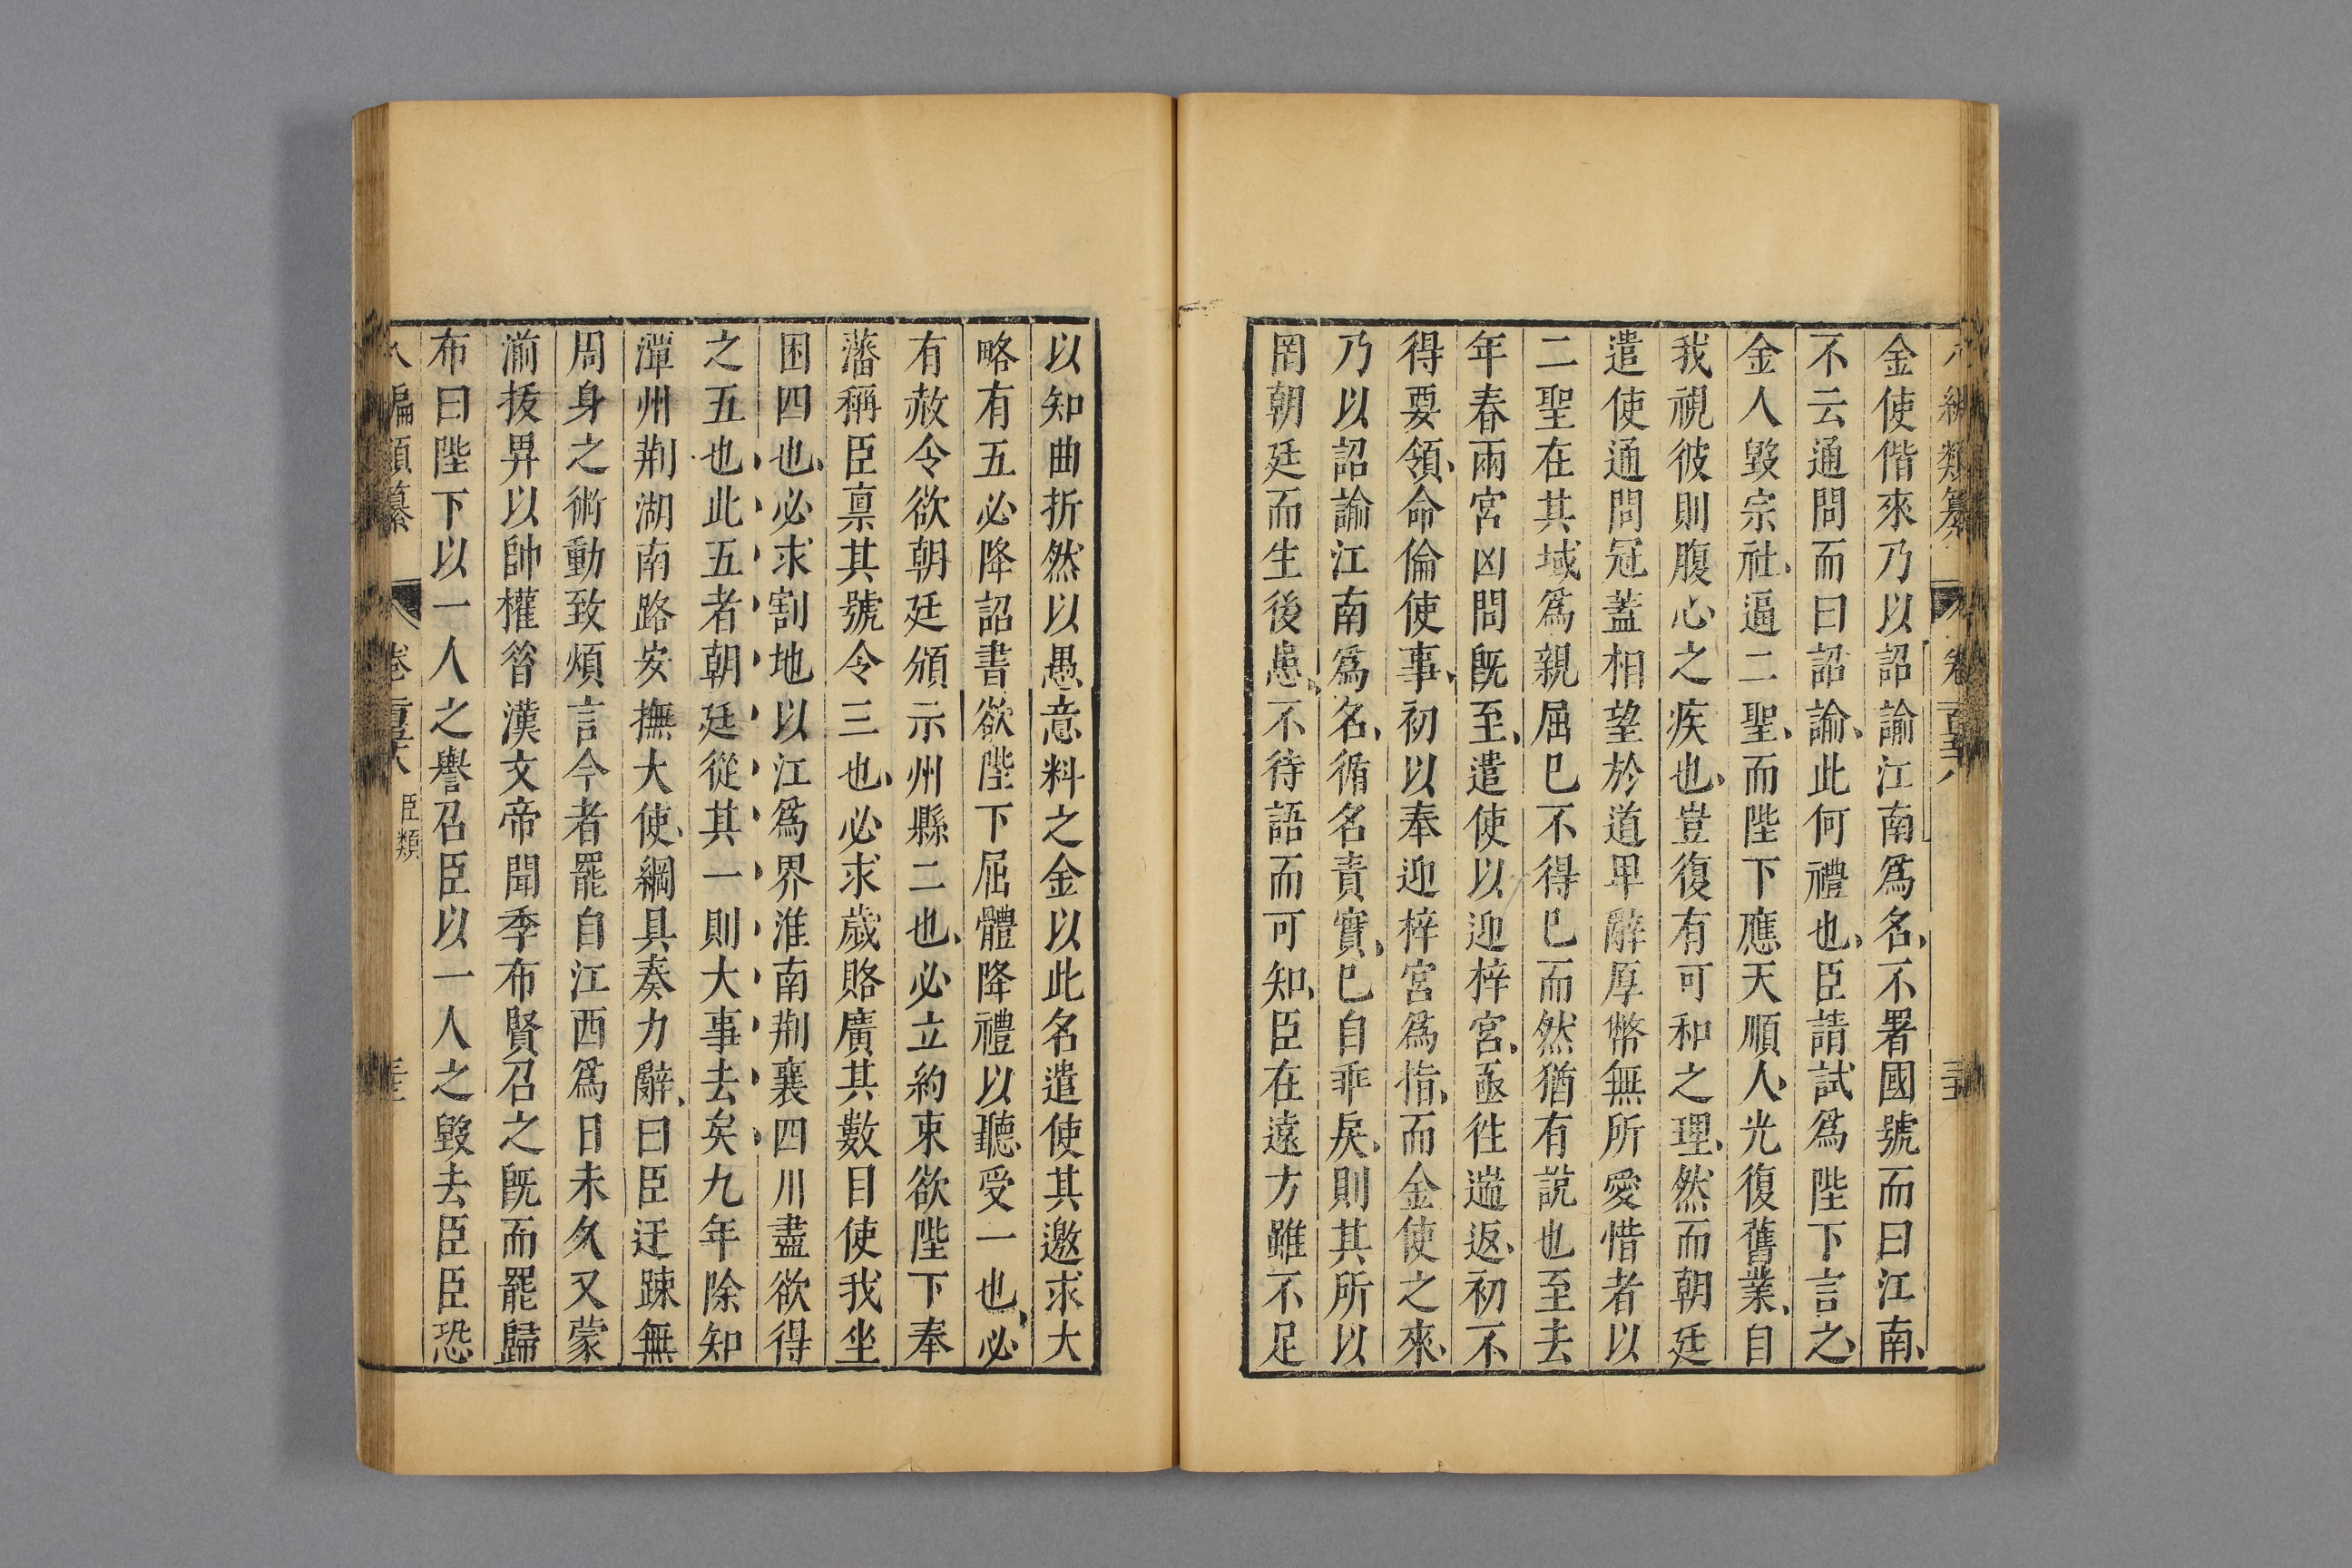 金使偕來乃以詔諭江南爲名不署國號而曰江南
不云通問而曰詔諭此何禮也臣請試爲陛下言之
金人毀宗社逼二聖而陛下應天順人光復舊業自
我視彼則腹心之疾也豈復有可和之理然而朝廷
遣使通問冠蓋相望於道卑辭厚幣無所愛惜者以
二聖在其域爲親屈巳不得巳而然猶有說也至去
年春兩宮凶問旣至遣使以迎梓宮亟徃遄返初不
得要領命倫使事初以奉迎梓宮爲指而金使之來
乃以詔諭江南爲名循名責實巳自乖戾則其所以
罔朝廷而生後患不待語而可知臣在遠方雖不足
以知曲折然以愚意料之金以此名遣使其邀求大
略有五必降詔書欲陛下屈體降禮以聽受一也必
有赦令欲朝廷頒示州縣二也必立約束欲陛下奉
藩稱臣禀其號令三也必求歲賂廣其數目使我坐
困四也必求割地以江爲界淮南荆襄四川盡欲得
之五也此五者朝廷從其一則大事去矣九年除知
潭州荆湖南路安撫大使綱具奏力辭曰臣迂踈無
周身之術動致煩言今者罷自江西爲日未久又蒙
湔拔畀以帥權昝漢文帝聞季布賢召之旣而罷歸
布曰陛下以一人之譽召臣以一人之毀去臣臣恐
編類纂 卷 臣類